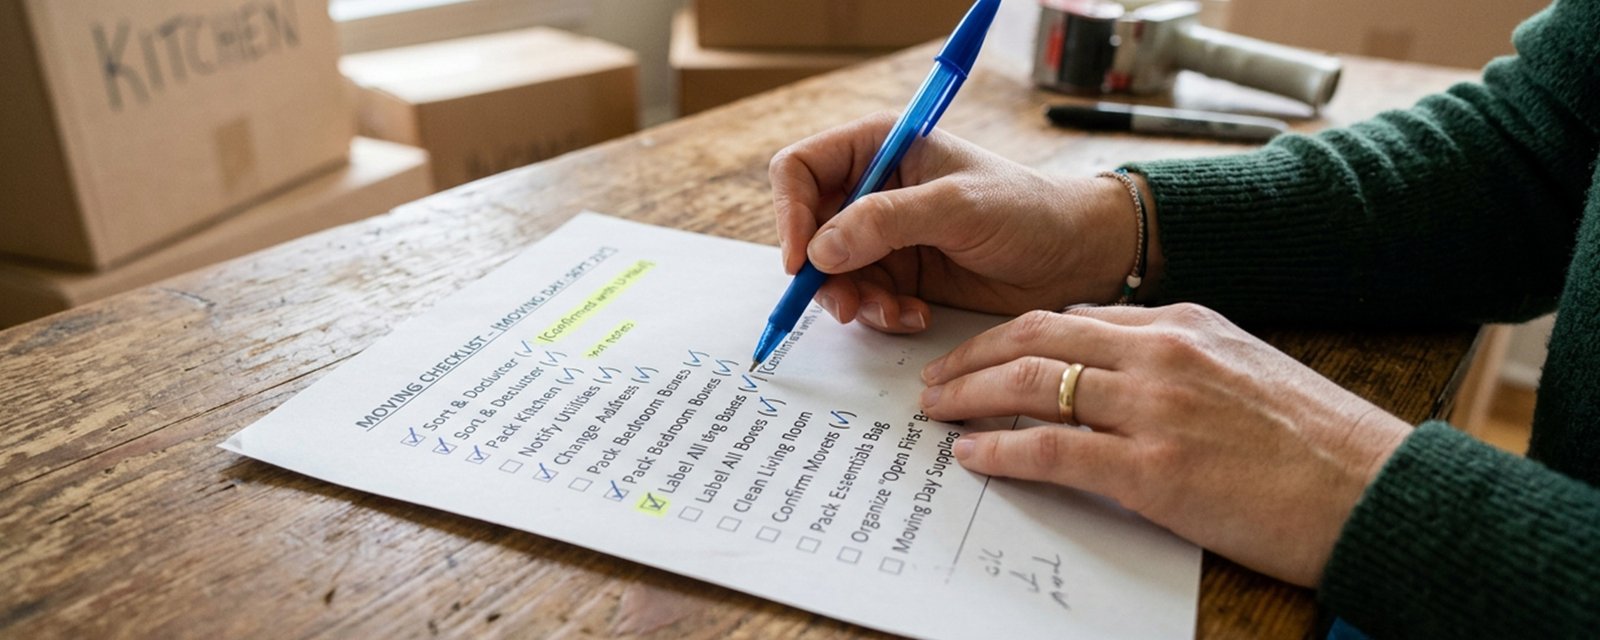 KITCHEN
MOVING CHECKLIST - (MOVING DAY: SEPT
☑ Sort & Docluiter (✓) [Confirmed with
☑ Sort & Declutter (✓)
☑ Pack Kitchen (✓)
☐ Notify Utilities (✓)
☑ Change Address (✓)
☐ Pack Bedroom Boxes (✓)
☑ Pack Bedroom Boxes (✓)
☑ Label All (✓)
☐ Label All Boxes (✓)
☐ Clean Living Room
☐ Confirm Movers (✓)
☐ Pack Essentials Bag
☐ Organize "Open First" B
☐ Moving Day Supplies